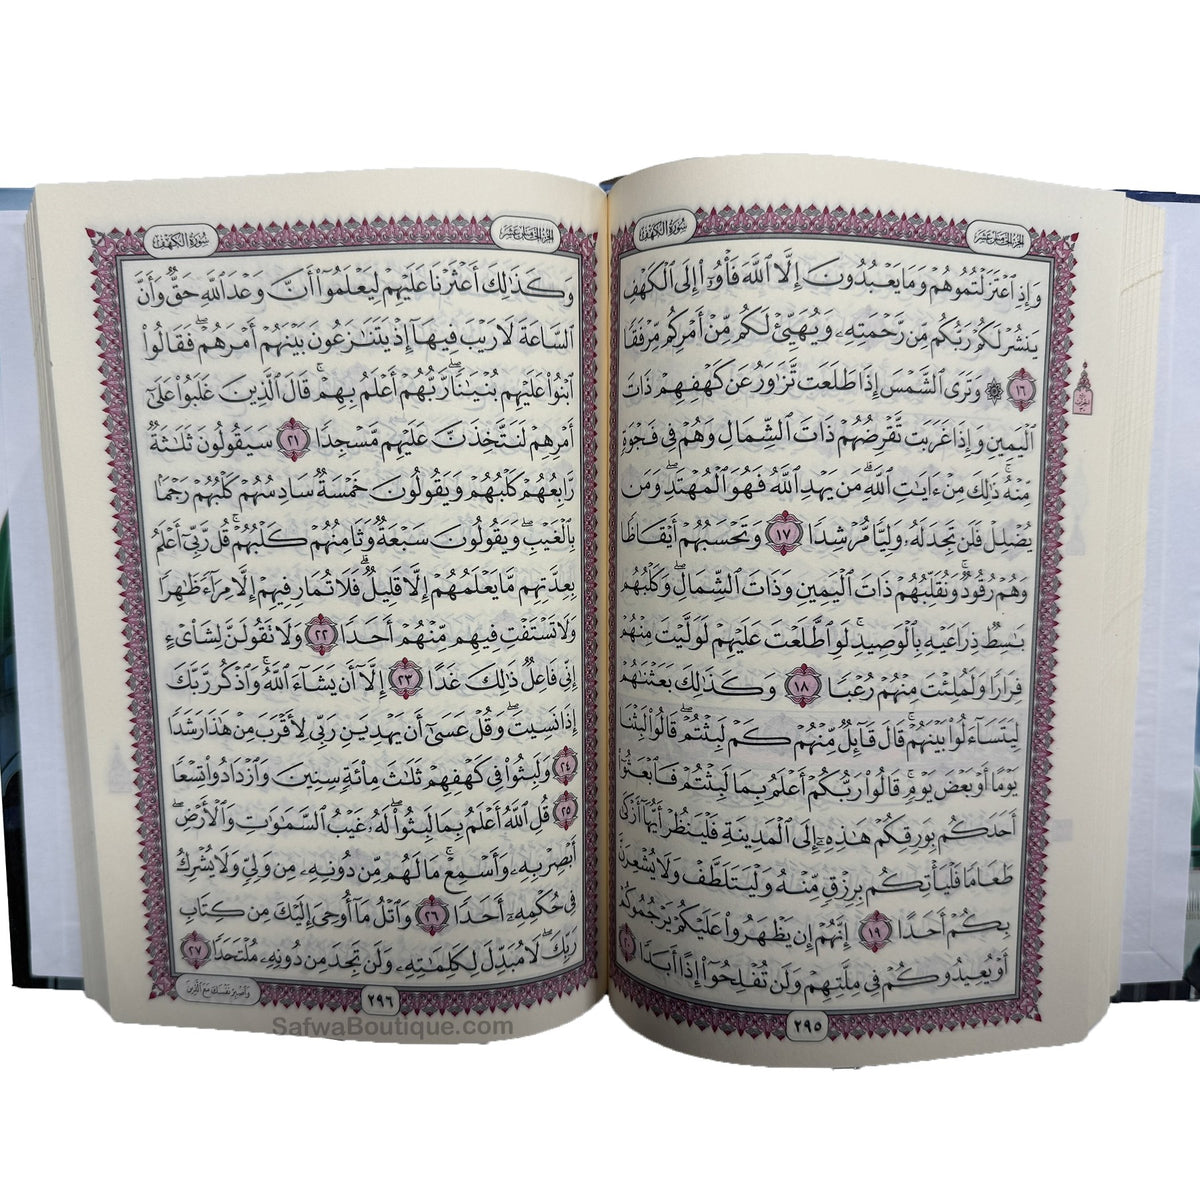 الجزء الخامس عشر
سورة الكهف
وَإِذِ ٱعۡتَزَلۡتُمُوهُمۡ وَمَا يَعۡبُدُونَ إِلَّا ٱللَّهَ فَأۡوُۥٓاْ إِلَى ٱلۡكَهۡفِ
يَنشُرۡ لَكُمۡ رَبُّكُم مِّن رَّحۡمَتِهِۦ وَيُهَيِّئۡ لَكُم مِّنۡ أَمۡرِكُم مِّرۡفَقٗا
١٦ ۞ وَتَرَى ٱلشَّمۡسَ إِذَا طَلَعَت تَّزَٰوَرُ عَن كَهۡفِهِمۡ ذَاتَ
ٱلۡيَمِينِ وَإِذَا غَرَبَت تَّقۡرِضُهُمۡ ذَاتَ ٱلشِّمَالِ وَهُمۡ فِي فَجۡوَةٖ
مِّنۡهُۚ ذَٰلِكَ مِنۡ ءَايَٰتِ ٱللَّهِۗ مَن يَهۡدِ ٱللَّهُ فَهُوَ ٱلۡمُهۡتَدِۖ وَمَن
يُضۡلِلۡ فَلَن تَجِدَ لَهُۥ وَلِيّٗا مُّرۡشِدٗا ١٧ وَتَحۡسَبُهُمۡ أَيۡقَاظٗا
وَهُمۡ رُقُودٞۚ وَنُقَلِّبُهُمۡ ذَاتَ ٱلۡيَمِينِ وَذَاتَ ٱلشِّمَالِۖ وَكَلۡبُهُم
بَٰسِطٞ ذِرَاعَيۡهِ بِٱلۡوَصِيدِۚ لَوِ ٱطَّلَعۡتَ عَلَيۡهِمۡ لَوَلَّيۡتَ مِنۡهُمۡ
فِرَارٗا وَلَمُلِئۡتَ مِنۡهُمۡ رُعۡبٗا ١٨ وَكَذَٰلِكَ بَعَثۡنَٰهُمۡ
لِيَتَسَآءَلُواْ بَيۡنَهُمۡۚ قَالَ قَآئِلٞ مِّنۡهُمۡ كَمۡ لَبِثۡتُمۡۖ قَالُواْ لَبِثۡنَا
يَوۡمًا أَوۡ بَعۡضَ يَوۡمٖۚ قَالُواْ رَبُّكُمۡ أَعۡلَمُ بِمَا لَبِثۡتُمۡ فَٱبۡعَثُوٓاْ
أَحَدَكُم بِوَرِقِكُمۡ هَٰذِهِۦٓ إِلَى ٱلۡمَدِينَةِ فَلۡيَنظُرۡ أَيُّهَآ أَزۡكَىٰ
طَعَامٗا فَلۡيَأۡتِكُم بِرِزۡقٖ مِّنۡهُ وَلۡيَتَلَطَّفۡ وَلَا يُشۡعِرَنَّ
بِكُمۡ أَحَدًا ١٩ إِنَّهُمۡ إِن يَظۡهَرُواْ عَلَيۡكُمۡ يَرۡجُمُوكُمۡ
أَوۡ يُعِيدُوكُمۡ فِي مِلَّتِهِمۡ وَلَن تُفۡلِحُوٓاْ إِذًا أَبَدٗا ٢٠
٢٩٥
الجزء الخامس عشر
سورة الكهف
وَكَذَٰلِكَ أَعۡثَرۡنَا عَلَيۡهِمۡ لِيَعۡلَمُوٓاْ أَنَّ وَعۡدَ ٱللَّهِ حَقّٞ وَأَنَّ
ٱلسَّاعَةَ لَا رَيۡبَ فِيهَآ إِذۡ يَتَنَٰزَعُونَ بَيۡنَهُمۡ أَمۡرَهُمۡۖ فَقَالُواْ
ٱبۡنُواْ عَلَيۡهِم بُنۡيَٰنٗاۖ رَّبُّهُمۡ أَعۡلَمُ بِهِمۡۚ قَالَ ٱلَّذِينَ غَلَبُواْ عَلَىٰٓ
أَمۡرِهِمۡ لَنَتَّخِذَنَّ عَلَيۡهِم مَّسۡجِدٗا ٢١ سَيَقُولُونَ ثَلَٰثَةٞ
رَّابِعُهُمۡ كَلۡبُهُمۡ وَيَقُولُونَ خَمۡسَةٞ سَادِسُهُمۡ كَلۡبُهُمۡ رَجۡمَۢا
بِٱلۡغَيۡبِۖ وَيَقُولُونَ سَبۡعَةٞ وَثَامِنُهُمۡ كَلۡبُهُمۡۚ قُل رَّبِّيٓ أَعۡلَمُ
بِعِدَّتِهِم مَّا يَعۡلَمُهُمۡ إِلَّا قَلِيلٞۗ فَلَا تُمَارِ فِيهِمۡ إِلَّا مِرَآءٗ ظَٰهِرٗا
وَلَا تَسۡتَفۡتِ فِيهِم مِّنۡهُمۡ أَحَدٗا ٢٢ وَلَا تَقُولَنَّ لِشَاْيۡءٍ
إِنِّي فَاعِلٞ ذَٰلِكَ غَدًا ٢٣ إِلَّآ أَن يَشَآءَ ٱللَّهُۚ وَٱذۡكُر رَّبَّكَ
إِذَا نَسِيتَۖ وَقُلۡ عَسَىٰٓ أَن يَهۡدِيَنِ رَبِّي لِأَقۡرَبَ مِنۡ هَٰذَا رَشَدٗا
٢٤ وَلَبِثُواْ فِي كَهۡفِهِمۡ ثَلَٰثَ مِاْئَةٖ سِنِينَ وَٱزۡدَادُواْ تِسۡعٗا
٢٥ قُلِ ٱللَّهُ أَعۡلَمُ بِمَا لَبِثُواْۖ لَهُۥ غَيۡبُ ٱلسَّمَٰوَٰتِ وَٱلۡأَرۡضِۖ
أَبۡصِرۡ بِهِۦ وَأَسۡمِعۡۚ مَا لَهُم مِّن دُونِهِۦ مِن وَلِيّٖ وَلَا يُشۡرِكُ
فِي حُكۡمِهِۦٓ أَحَدٗا ٢٦ وَٱتۡلُ مَآ أُوحِيَ إِلَيۡكَ مِن كِتَابِ
رَبِّكَۖ لَا مُبَدِّلَ لِكَلِمَٰتِهِۦ وَلَن تَجِدَ مِن دُونِهِۦ مُلۡتَحَدٗا ٢٧
وَٱصۡبِرۡ نَفۡسَكَ مَعَ ٱلَّذِينَ
٢٩٦
SafwaBoutique.com